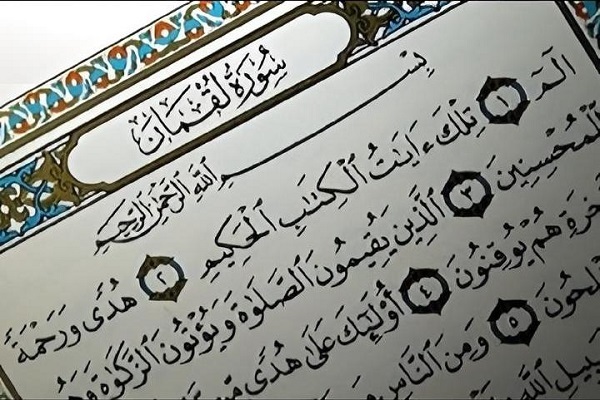 سُورَةُ لُقْمَان
بِسْمِ اللَّهِ الرَّحْمَٰنِ الرَّحِيمِ
الٓمٓ ١ تِلْكَ ءَايَٰتُ ٱلْكِتَٰبِ ٱلْحَكِيمِ ٢ هُدًى وَرَحْمَةً
لْمُحْسِنِينَ ٣ ٱلَّذِينَ يُقِيمُونَ ٱلصَّلَوٰةَ وَيُؤْتُونَ ٱلزَّكَوٰةَ وَهُم
خِرَةِ هُمْ يُوقِنُونَ ٤ أُو۟لَٰٓئِكَ عَلَىٰ هُدًى مِّن
لِحُونَ ٥ وَمِنَ ٱلنَّاسِ
بِيلِ ٱللَّهِ